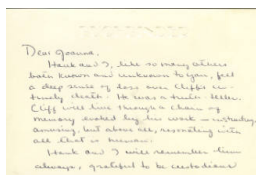 Dear Joanne,
Hank and I, like so many others
both known and unknown to you, feel
a deep sense of loss over Cliff's un-
timely death. He was a truth teller.
Cliff will live through a chain of
memory evoked by his work — intriguing,
amusing, but above all, resonating with
all that is human.
Hank and I will remember him
always, grateful to be custodians